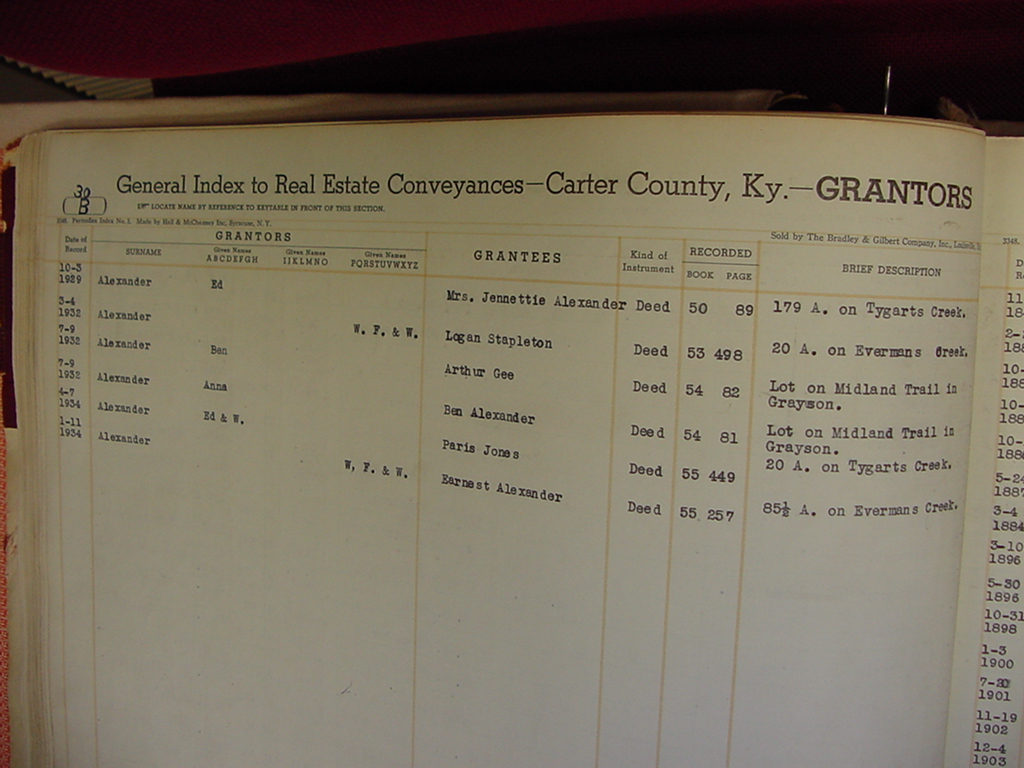 30
B
General Index to Real Estate Conveyances—Carter County, Ky.—GRANTORS
LOCATE NAME BY REFERENCE TO KEYTABLE IN FRONT OF THIS SECTION.
Made by Hall & McChesney Inc, Syracuse, N. Y.
Sold by The Bradley & Gilbert Company, Inc.,
Date of Record
GRANTORS
SURNAME
Given Names ABCDEFGH
Given Names IJKLMNO
Given Names PQRSTUVWXYZ
GRANTEES
Kind of Instrument
RECORDED
BOOK PAGE
BRIEF DESCRIPTION
10-3 1929 Alexander Ed Mrs. Jennettie Alexander Deed 50 89 179 A. on Tygarts Creek.
3-4 1932 Alexander W. F. & W. Logan Stapleton Deed 53 498 20 A. on Evermans Creek.
7-9 1932 Alexander Ben Arthur Gee Deed 54 82 Lot on Midland Trail in
Grayson.
7-9 1932 Alexander Anna Ben Alexander Deed 54 81 Lot on Midland Trail in
Grayson.
4-7 1934 Alexander Ed & W. Paris Jones Deed 55 449 20 A. on Tygarts Creek.
1-11 1934 Alexander W, F. & W. Earnest Alexander Deed 55 257 85½ A. on Evermans Creek.
3348.
11
18
2-
188
10-
188
10-
188
10-
188
5-24
1887
3-4
1884
3-10
1896
5-30
1896
10-31
1898
1-3
1900
1901
11-19
1902
12-4
1903